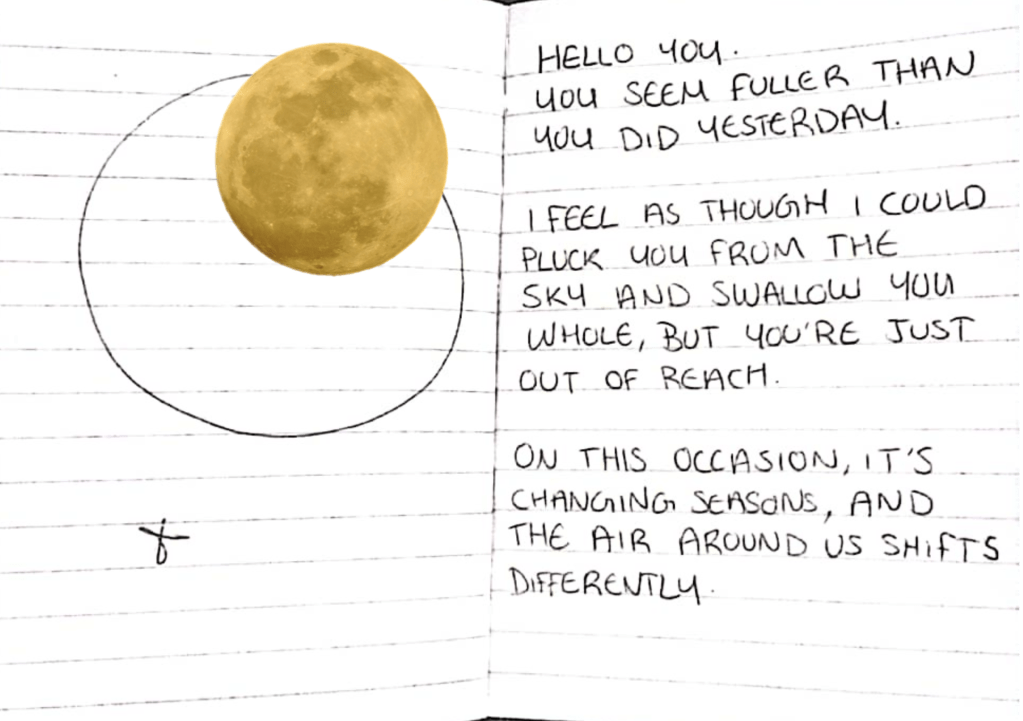 HELLO YOU.
YOU SEEM FULLER THAN
YOU DID YESTERDAY.
I FEEL AS THOUGH I COULD
PLUCK YOU FROM THE
SKY AND SWALLOW YOU
WHOLE, BUT YOU'RE JUST
OUT OF REACH.
ON THIS OCCASION, IT'S
CHANGING SEASONS, AND
THE AIR AROUND US SHIFTS
DIFFERENTLY.